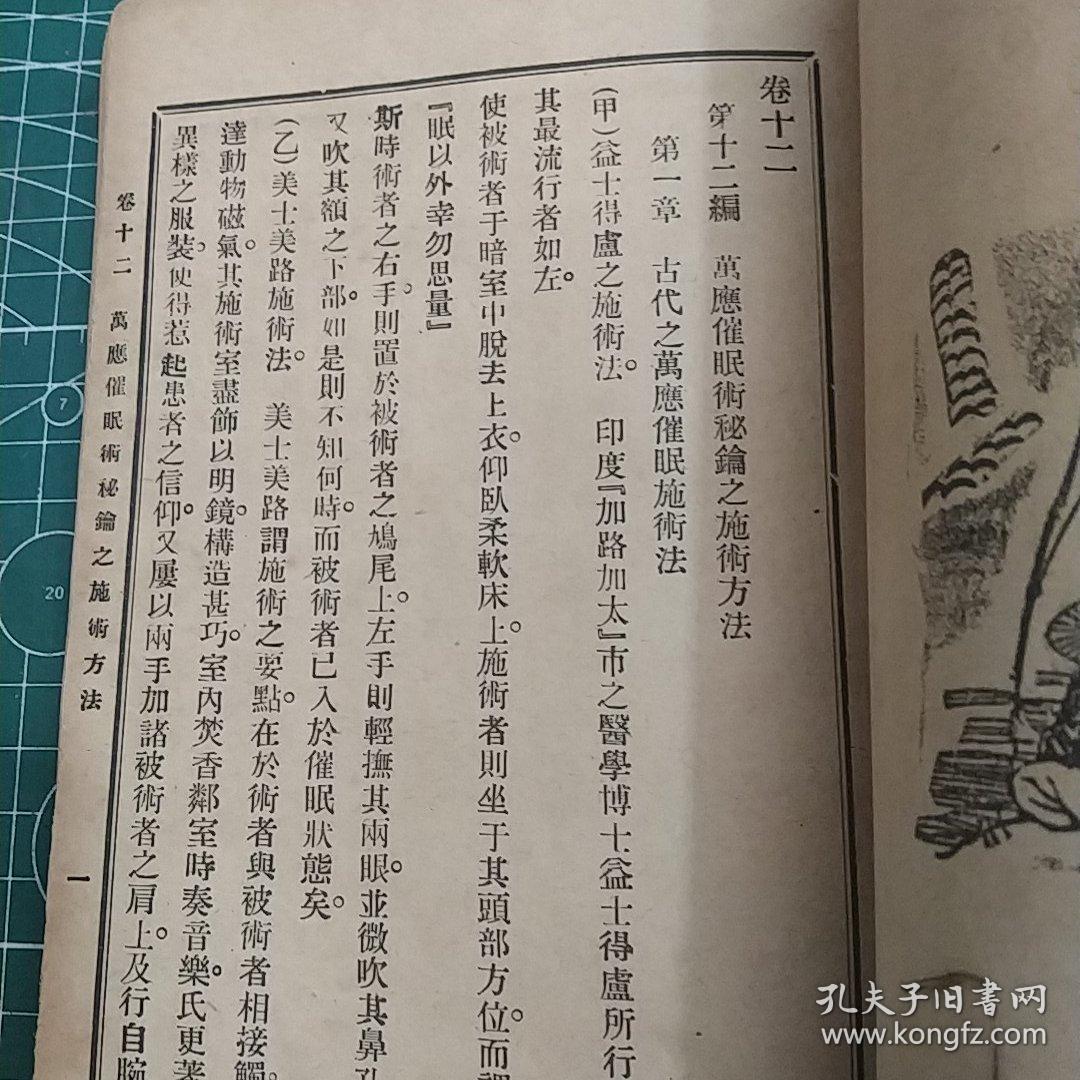 卷十二
第十二編　萬應催眠術秘鑰之施術方法
第一章　古代之萬應催眠施術法
(甲)益士得盧之施術法。　印度『加路加太』市之醫學博士益士得盧所行
其最流行者如左。
使被術者于暗室中脫去上衣。仰臥柔軟床上。施術者則坐于其頭部方位。而謂
『眠以外幸勿思量』
斯時術者之右手。則置於被術者之鳩尾上。左手則輕撫其兩眼。並微吹其鼻孔
又吹其額之下部。如是則不知何時。而被術者已入於催眠狀態矣。
(乙)美士美路施術法。　美士美路謂施術之要點。在於術者與被術者相接觸。
達動物磁氣。其施術室盡飾以明鏡。構造甚巧。室內焚香。鄰室時奏音樂。氏更著
異樣之服裝。使得惹起患者之信仰。又屢以兩手加諸被術者之肩上。及行自腕
卷十二　萬應催眠術秘鑰之施術方法
一
7
20
孔夫子旧书网
www.kongfz.com